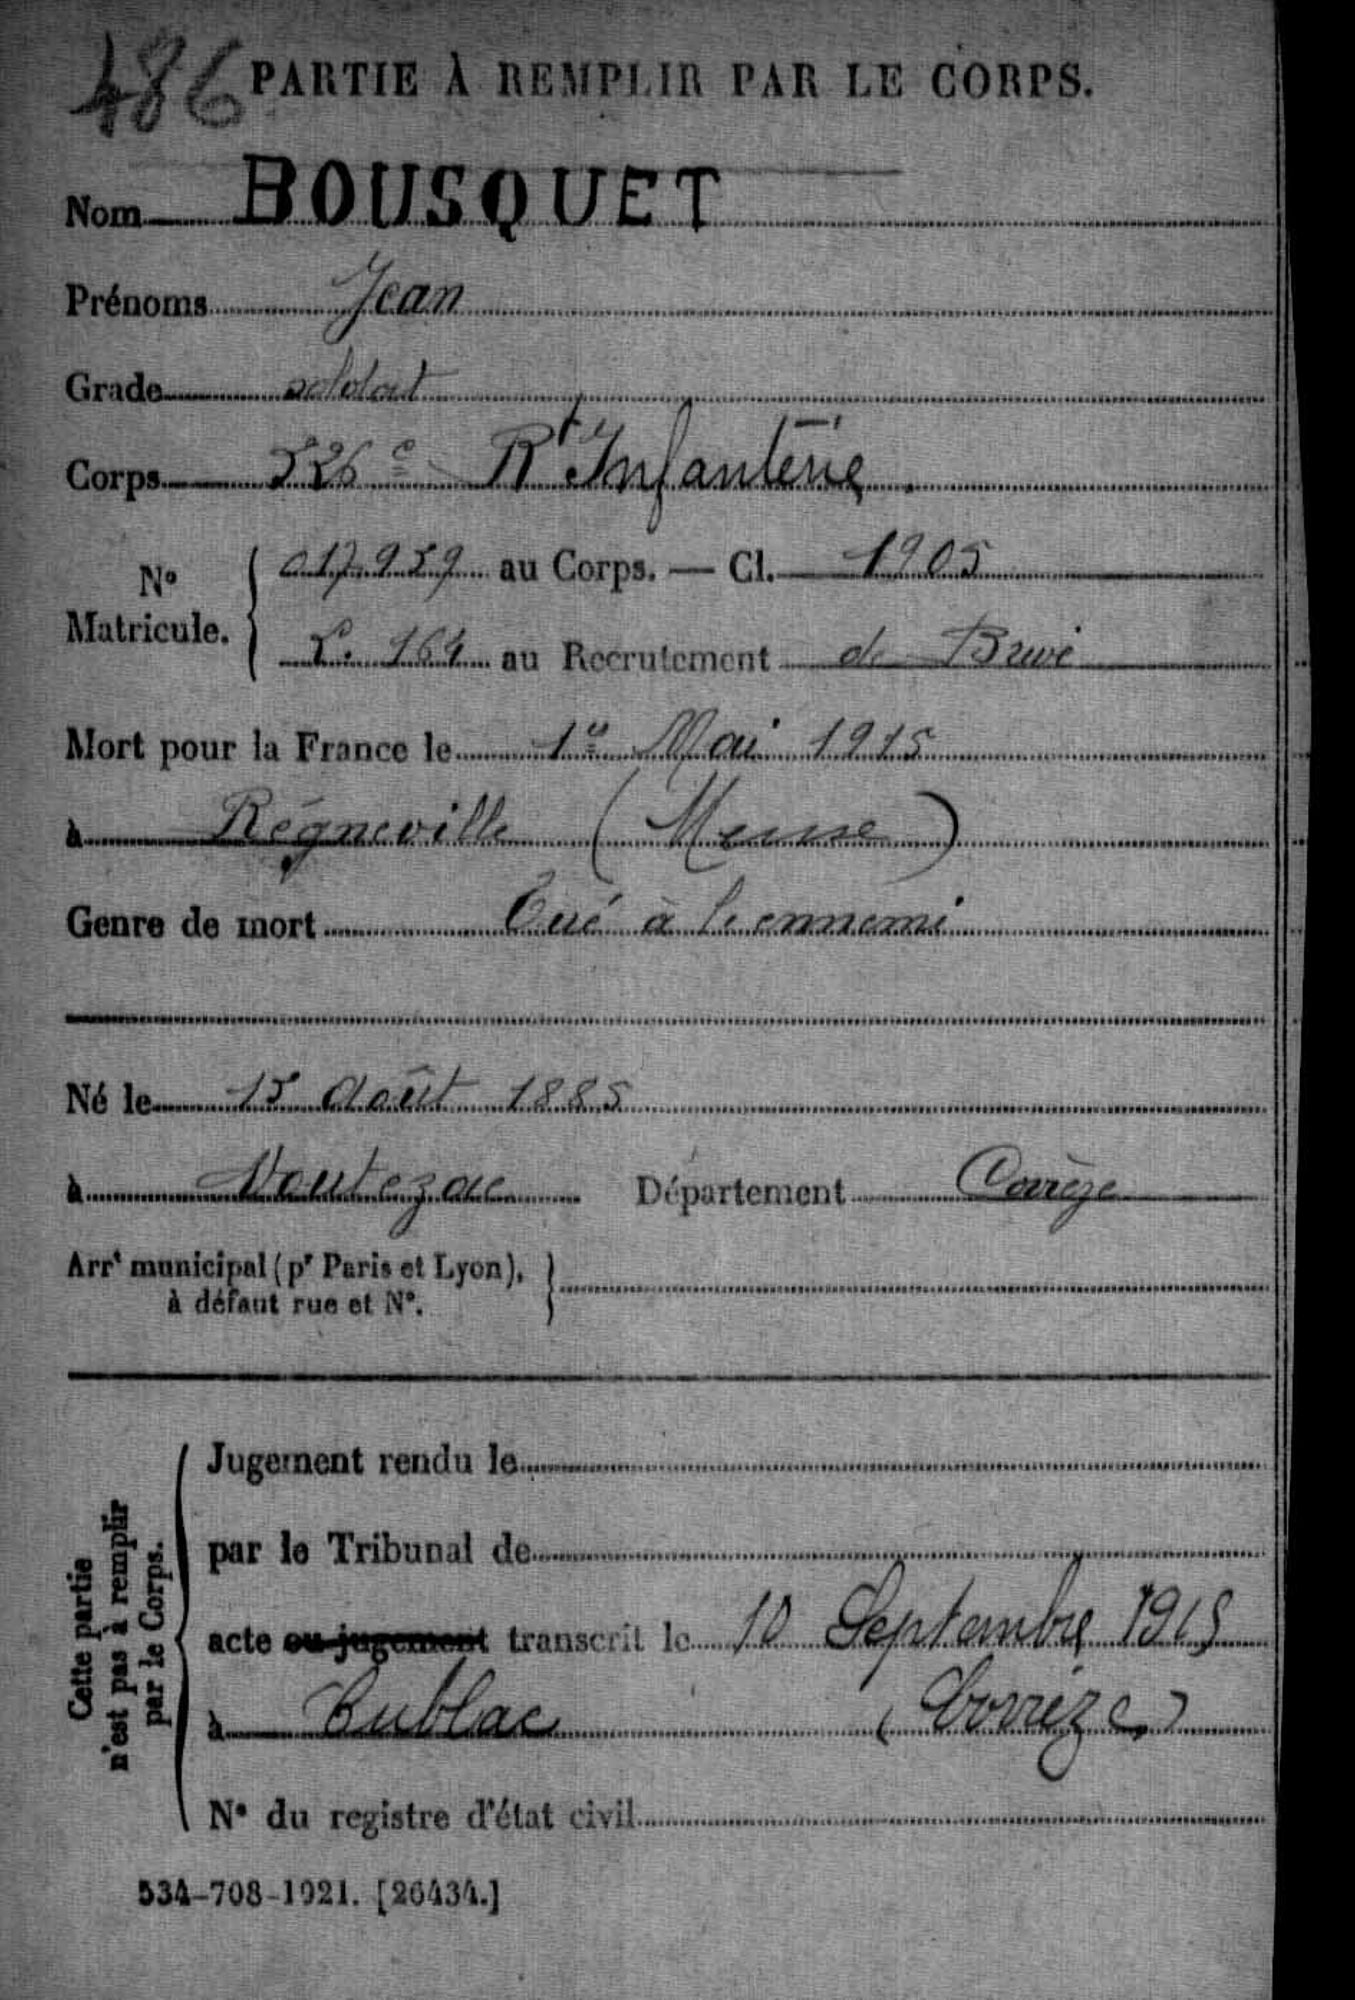 486 PARTIE À REMPLIR PAR LE CORPS.
Nom BOUSQUET
Prénoms Jean
Grade soldat
Corps 326e Rt Infanterie.
No Matricule. 017959 au Corps. — Cl. 1905
L. 164 au Recrutement de Brive
Mort pour la France le 1er Mai 1915
à Régneville (Meuse)
Genre de mort Tué à l'ennemi
Né le 15 Août 1885
à Voutezac Département Corrèze
Arrt municipal (pr Paris et Lyon),
à défaut rue et No.
Cette partie
n'est pas à remplir
par le Corps.
Jugement rendu le
par le Tribunal de
acte ou jugement transcrit le 10 Septembre 1915
à Cublac (Corrèze)
No du registre d'état civil
534-708-1921. [26434.]